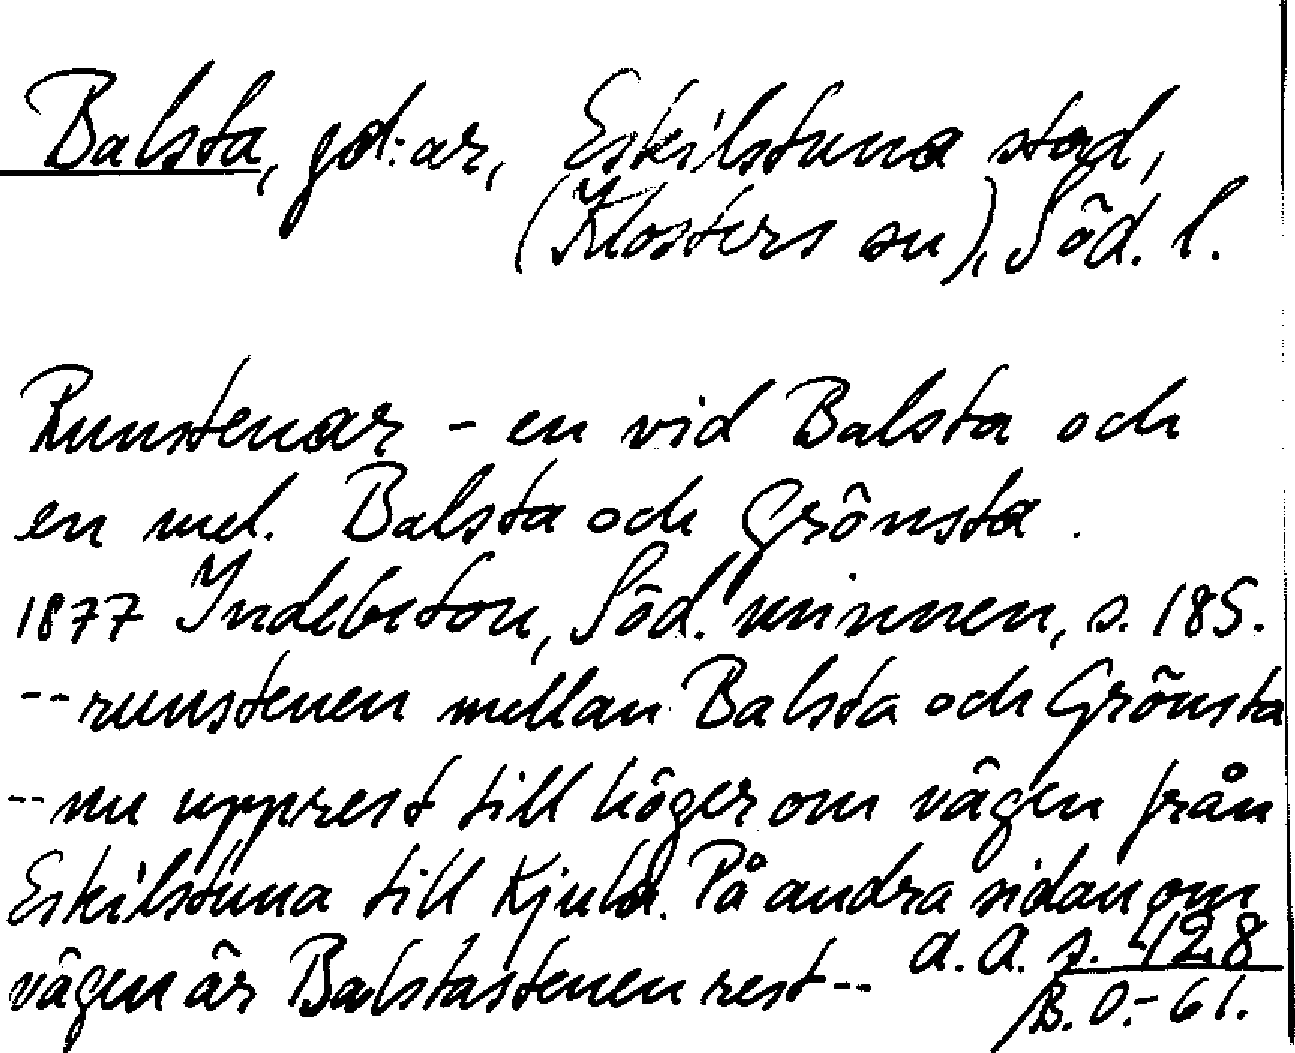 Balsta, gd:ar, Eskilstuna stad,
(Klosters sn), Söd. l.
Runstenar - en vid Balsta och
en mel. Balsta och Grönsta.
1877 Indebetou, Söd. minnen, s. 185.
-- runstenen mellan Balsta och Grönsta
-- nu upprest till höger om vägen från
Eskilstuna till Kjula. På andra sidan om
vägen är Balstastenen rest -- a. a. s. 428
B. O. - 61.